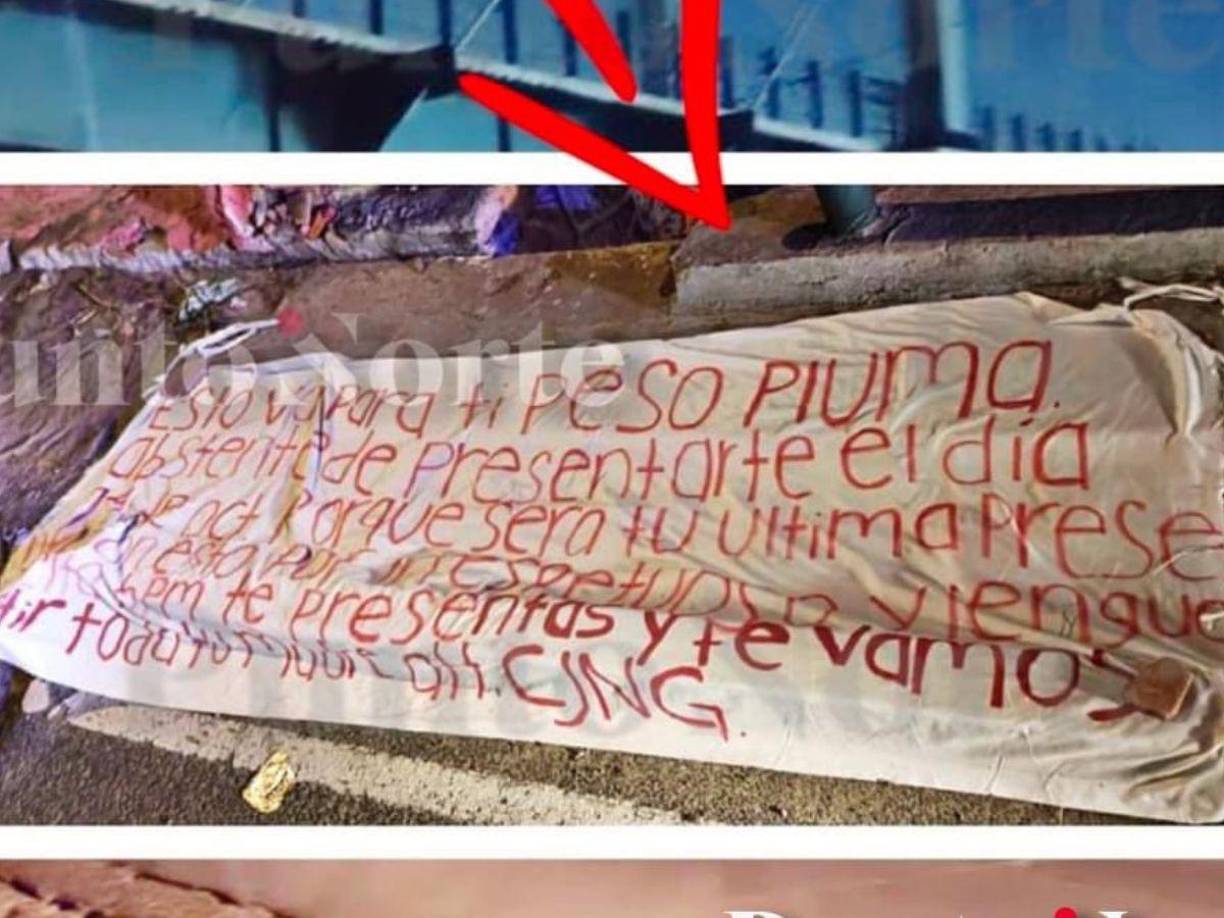 Punto Norte
Punto Norte
Esto va para ti PESO PlUMA.
abstente de presentarte el día
de oct Porque sera tu Ultima Prese
esta por irrespetuoso y lengue
te presentas y te vamos
tir toda tu att. CJNG.